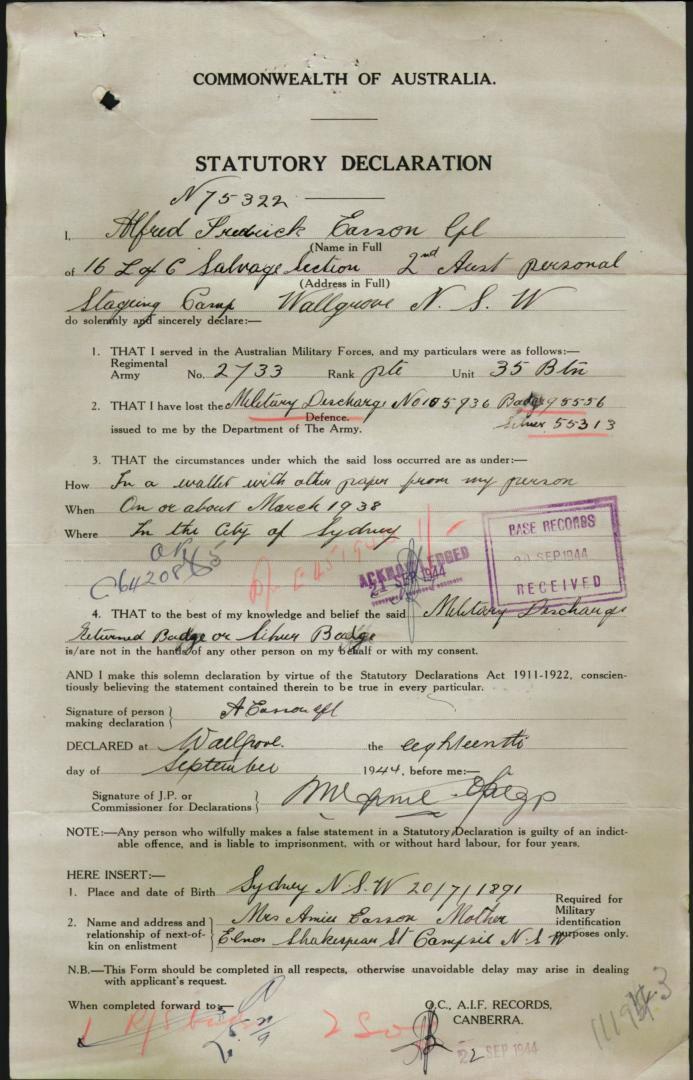 COMMONWEALTH OF AUSTRALIA.
STATUTORY DECLARATION
N75322
I, Alfred Fredrick Easson Cpl
(Name in Full
of 16 L of C Salvage Section 2nd Aust personal
(Address in Full)
Staging Camp Wallgrove N.S.W
do solemnly and sincerely declare:—
1. THAT I served in the Australian Military Forces, and my particulars were as follows:—
Regimental
Army No. 2733 Rank pte Unit 35 Btn
2. THAT I have lost the Military Discharge No 185936 Badge 95556
Defence.
issued to me by the Department of The Army. Silver 55313
3. THAT the circumstances under which the said loss occurred are as under:—
How In a wallet with other paper from my person
When On or about March 1938
Where In the City of Sydney
BASE RECORDS
20 SEP 1944
RECEIVED
ACKNOWLEDGED
21 SEP 1944
4. THAT to the best of my knowledge and belief the said Military Discharge
Returned Badge or Silver Badge
is/are not in the hands of any other person on my behalf or with my consent.
AND I make this solemn declaration by virtue of the Statutory Declarations Act 1911-1922, conscien-
tiously believing the statement contained therein to be true in every particular.
Signature of person
making declaration A Easson Cpl
DECLARED at Wallgrove the eighteenth
day of September 1944, before me:—
Signature of J.P. or
Commissioner for Declarations
NOTE:—Any person who wilfully makes a false statement in a Statutory Declaration is guilty of an indict-
able offence, and is liable to imprisonment, with or without hard labour, for four years.
HERE INSERT:—
1. Place and date of Birth Sydney N.S.W 20/7/1891
2. Name and address and
relationship of next-of-
kin on enlistment
Mrs Amies Easson Mother
Elnos Shakespear St Campsie N.S.W
Required for
Military
identification
purposes only.
N.B.—This Form should be completed in all respects, otherwise unavoidable delay may arise in dealing
with applicant's request.
When completed forward to:—
O.C., A.I.F. RECORDS,
CANBERRA.
22 SEP 1944